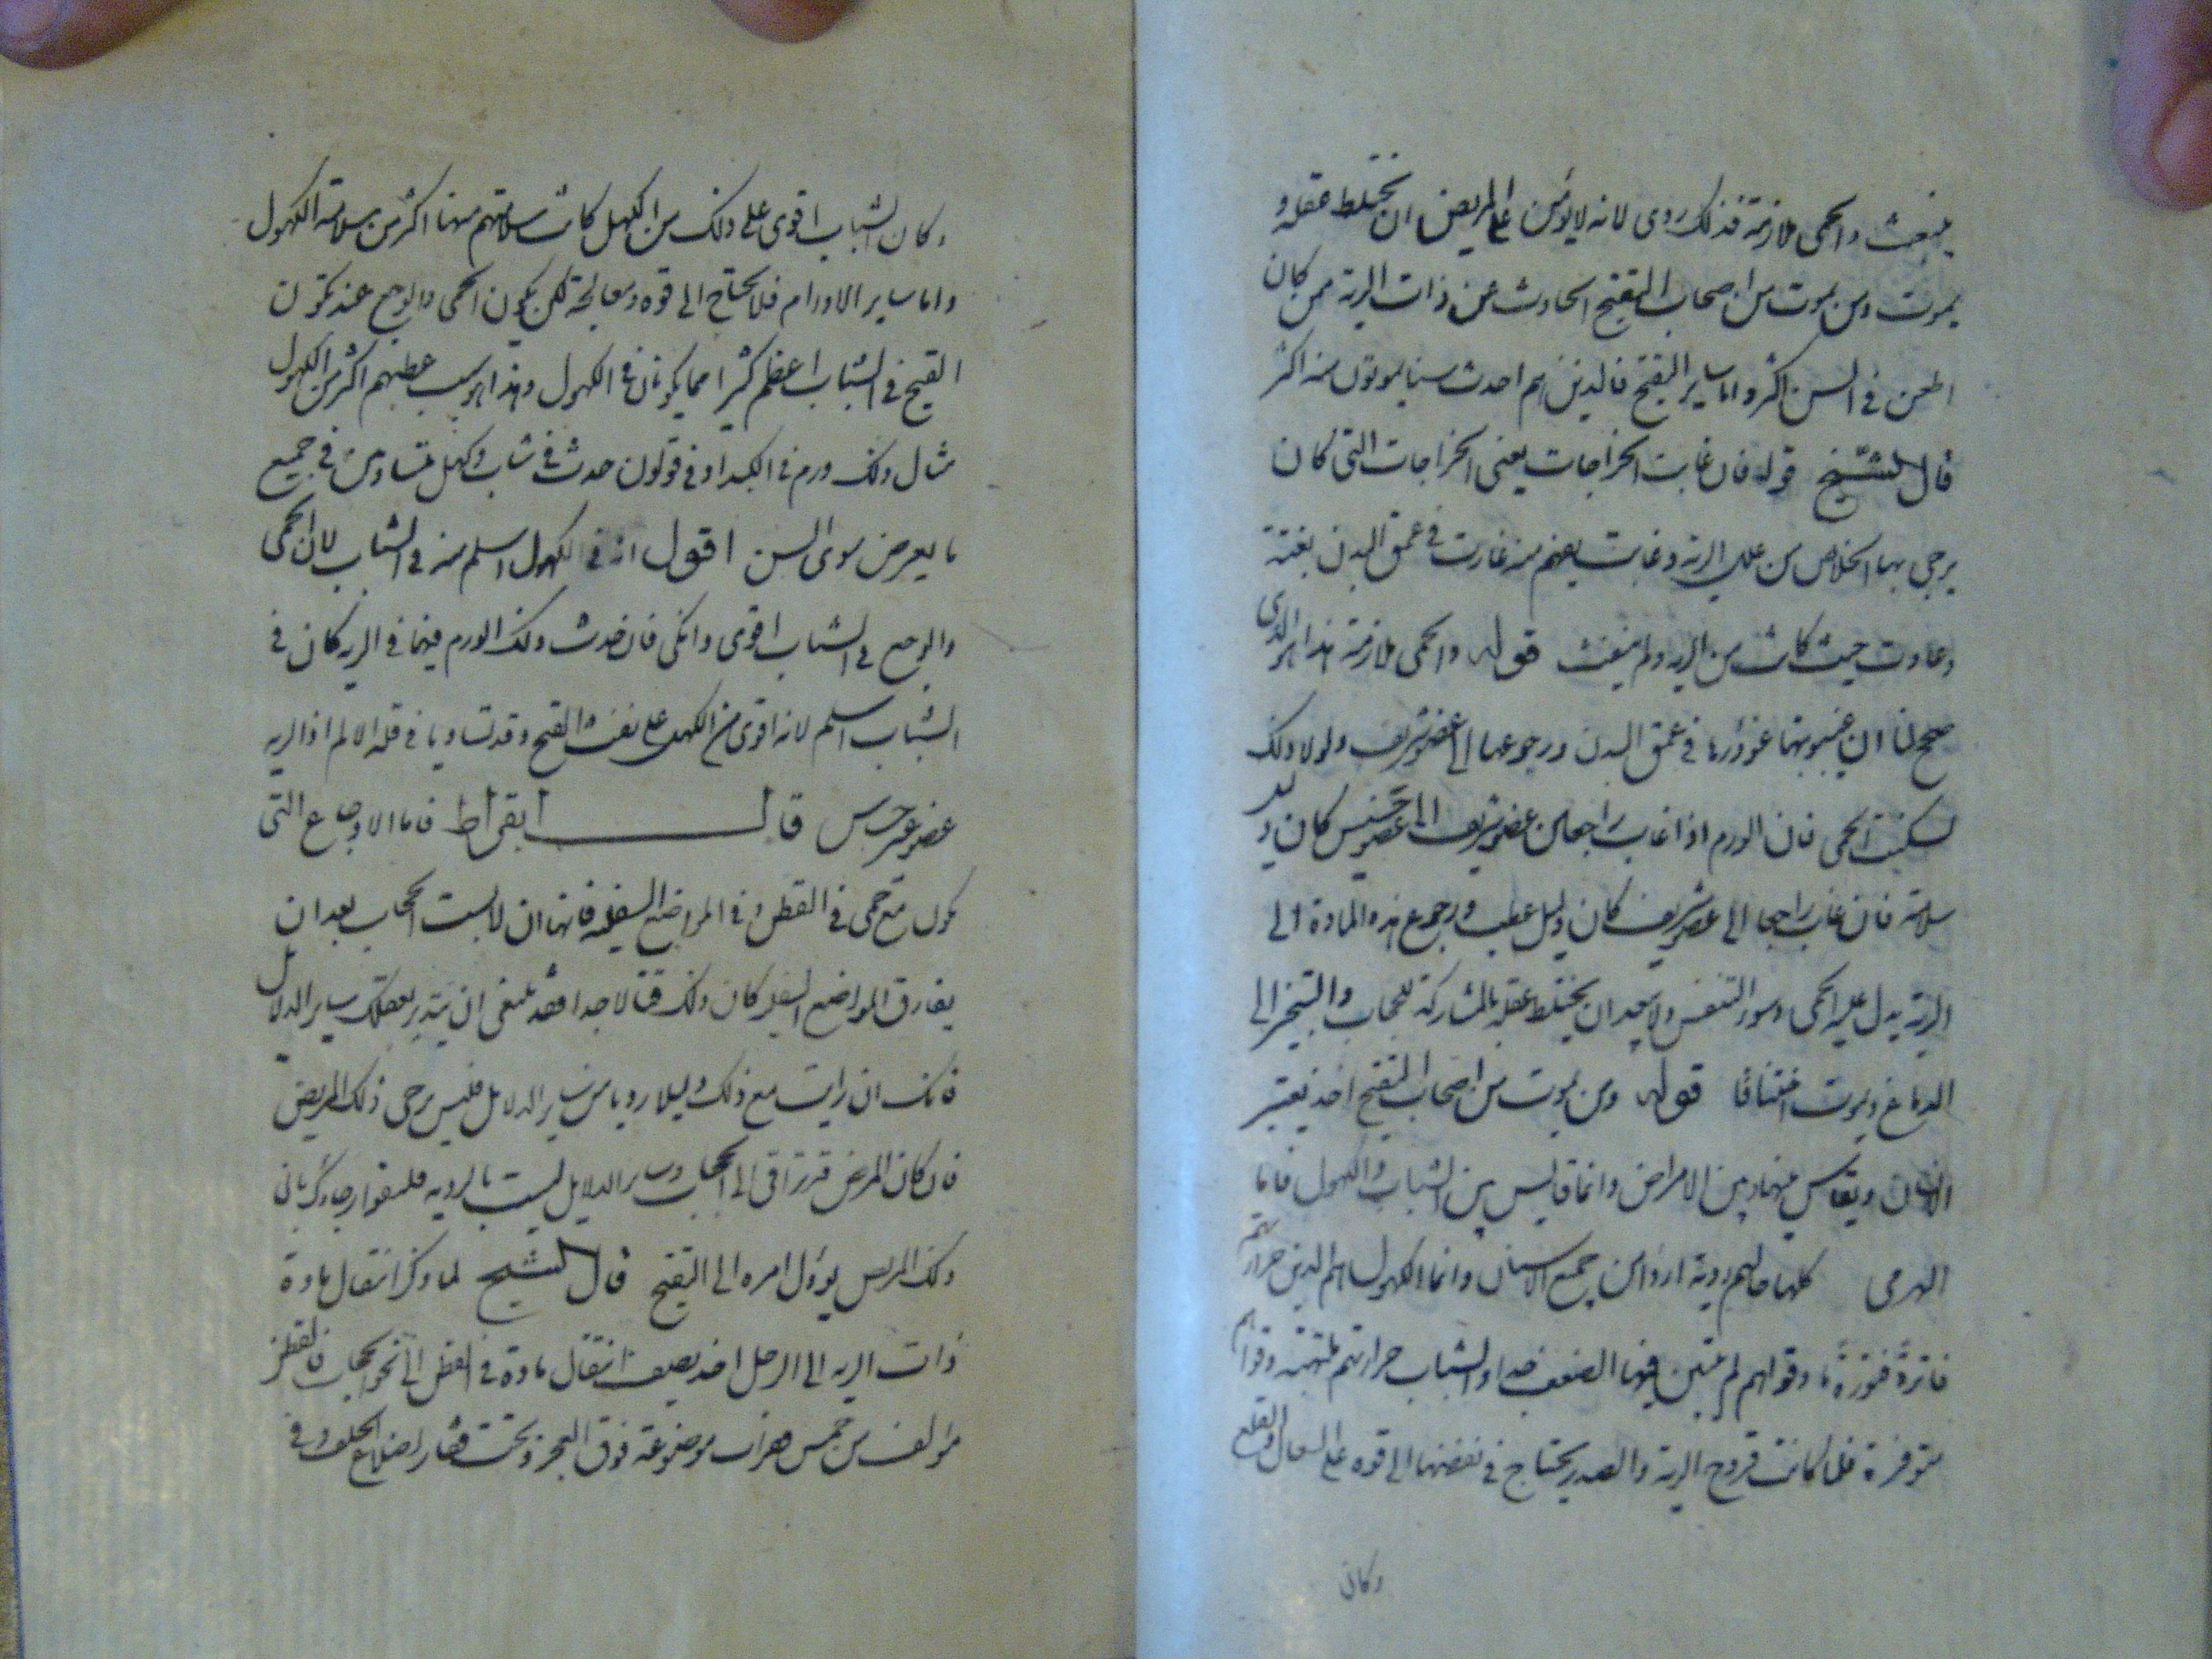 ينفث والحمى لازمة فذلك ردى لانه لا يؤمن على المريض ان يختلط عقله و
يموت ومن يموت من اصحاب التقيح الحادث عن ذات الرية ممن كان
اطعن فى السن اكثر واما ساير التقيح فالذين هم احدث سنا يموتون منه اكثر
قال الشيخ قوله فان غابت الخراجات يعنى الخراجات التى كان
يرجى بها الخلاص من علل الرية وغابت يعنى منه غارت فى عمق البدن بغتة
وعادت حيث كانت من الرية ولم ينفث قوله والحمى لازمة هذا هو الذى
صحح لنا ان غيبوبتها غوورها فى عمق البدن ورجوعها الى عضو شريف ولولا ذلك
لسكنت الحمى فان الورم اذا غاب راجعا من عضو شريف الى عضو خسيس كان دليل
سلامة فان غاب راجعا الى عضو شريف كان دليل عطب ورجوع هذه المادة الى
الرية يدل عليه الحمى وسوء التنفس ولا يبعد ان يختلط عقله بالمشاركة للحجاب والتبخير الى
الدماغ ويموت اختناقا قوله ومن يموت من اصحاب التقيح اخذ يعتبر
الاسنان ويقايس بينها وبين الامراض وانما قايس بين الشباب والكهول فاما
الهرمى كلها حالهم ردية اردأ من جميع الاسنان وانما الكهول هم الذين حرارتهم
فاترة فتورة ما وقواهم لم يتبين فيها الضعف جدا والشباب حرارتهم ملتهبة وقواهم
متوفرة فلما كانت قروح الرية والصدر يحتاج فى نفضها الى قوه على السعال والقلع
وكان
وكان الشباب اقوى على ذلك من الكهل كانت سلامتهم منها اكثر من سلامة الكهول
واما ساير الاورام فلا يحتاج الى قوه ومعالجة لكن يكون الحمى والوجع عند تكون
القيح فى الشباب اعظم كثيرا مما يكونان فى الكهول وهذا هو سبب عطبهم اكثر من الكهول
مثال ذلك ورم فى الكبد او فى قولون حدث فى شاب وكهل متساويين فى جميع
ما يعرض سوى السن اقول انه فى الكهول اسلم منه فى الشباب لان الحمى
والوجع فى الشباب اقوى وانكى فان حدث ذلك الورم فيهما فى الرية كان فى
الشباب اسلم لانه اقوى من الكهل على نفث القيح وقد تساويا فى قلة الالم اذ الرية
عضو غير حساس قال ابقراط فاما الاوجاع التى
تكون مع حمى فى القطن وفى المواضع السفلية فانها ان لابست الحجاب بعد ان
يفارق المواضع السفلية كان ذلك قتالا جدا فقد ينبغى ان يتدبر بعقلك ساير الدلايل
فانك ان رايت مع ذلك دليلا رديا من ساير الدلايل فليس يرجى ذلك المريض
فان كان المرض قد تراقى الى الحجاب وساير الدلايل ليست بالردية فليقو رجاؤك بان
ذلك المريض يؤول امره الى التقيح قال الشيخ لما ذكر انتقال مادة
ذات الرية الى الرجل اخذ يصف انتقال مادة فى القطن الى نحو الحجاب فالقطن
مؤلف من خمس خرزات موضوعة فوق العجز وتحت فقار اضلاع الخلف وفى